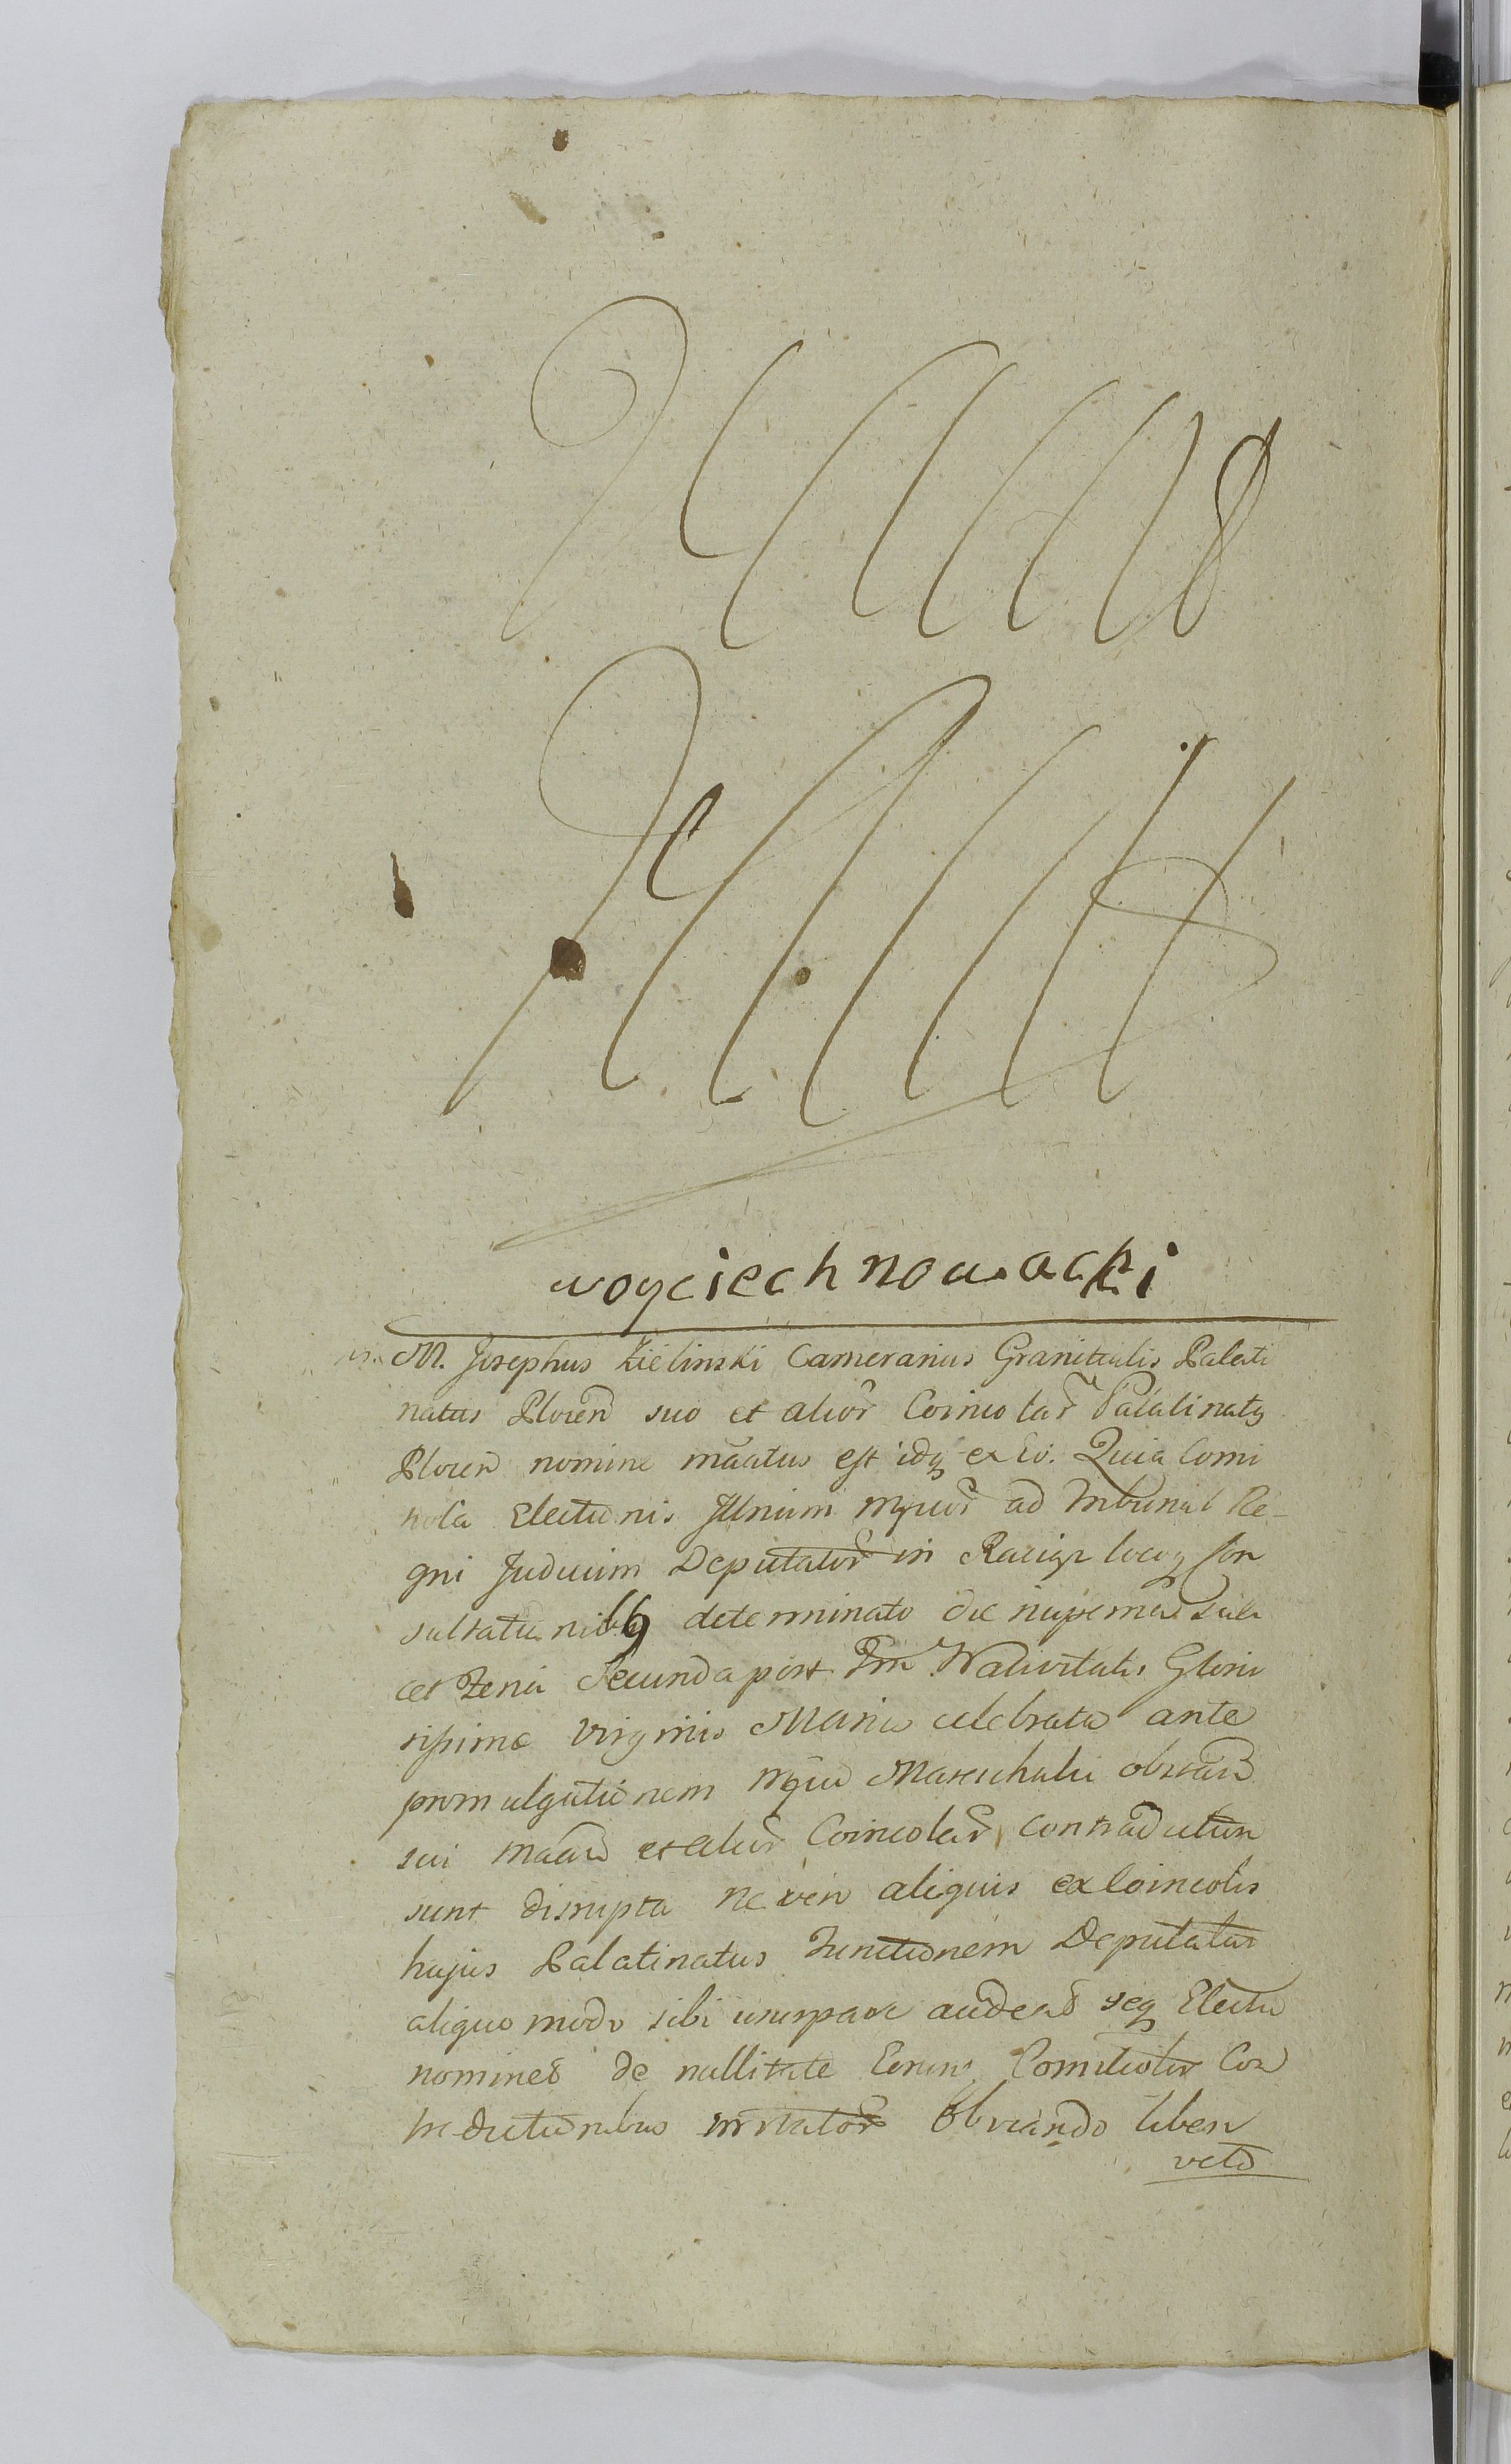 woyciech nowacki
M. Josephus Zielinski Camerarius Granitialis Palati
natus Plocen suo et alior Coincolar Palatinatq
Plocen nomine maatus est idq ex Eo. Quia Comi
Electionis Illrium Mgcor ad Tribunal Re-
gni Judicum Deputator in Raciąz locoq Con
sultationibq determinato die nuperna Sili
cet Feria Secunda post Ftm Nativitatis Glorio
sissime Virginis Maria celebrata ante
promulgationem Mgci Mareschalci
sui et alior Coincolar contradiction
sunt disrupta ne vero aliquis ex Coincolis
hujus Palatinatus Functionem Deputator
aliquo modo sibi usurpare auderet seq Electu
nominet de nullitate Eorum Comitiolor Con
tradictionibus irritator Obviando liberu
veto